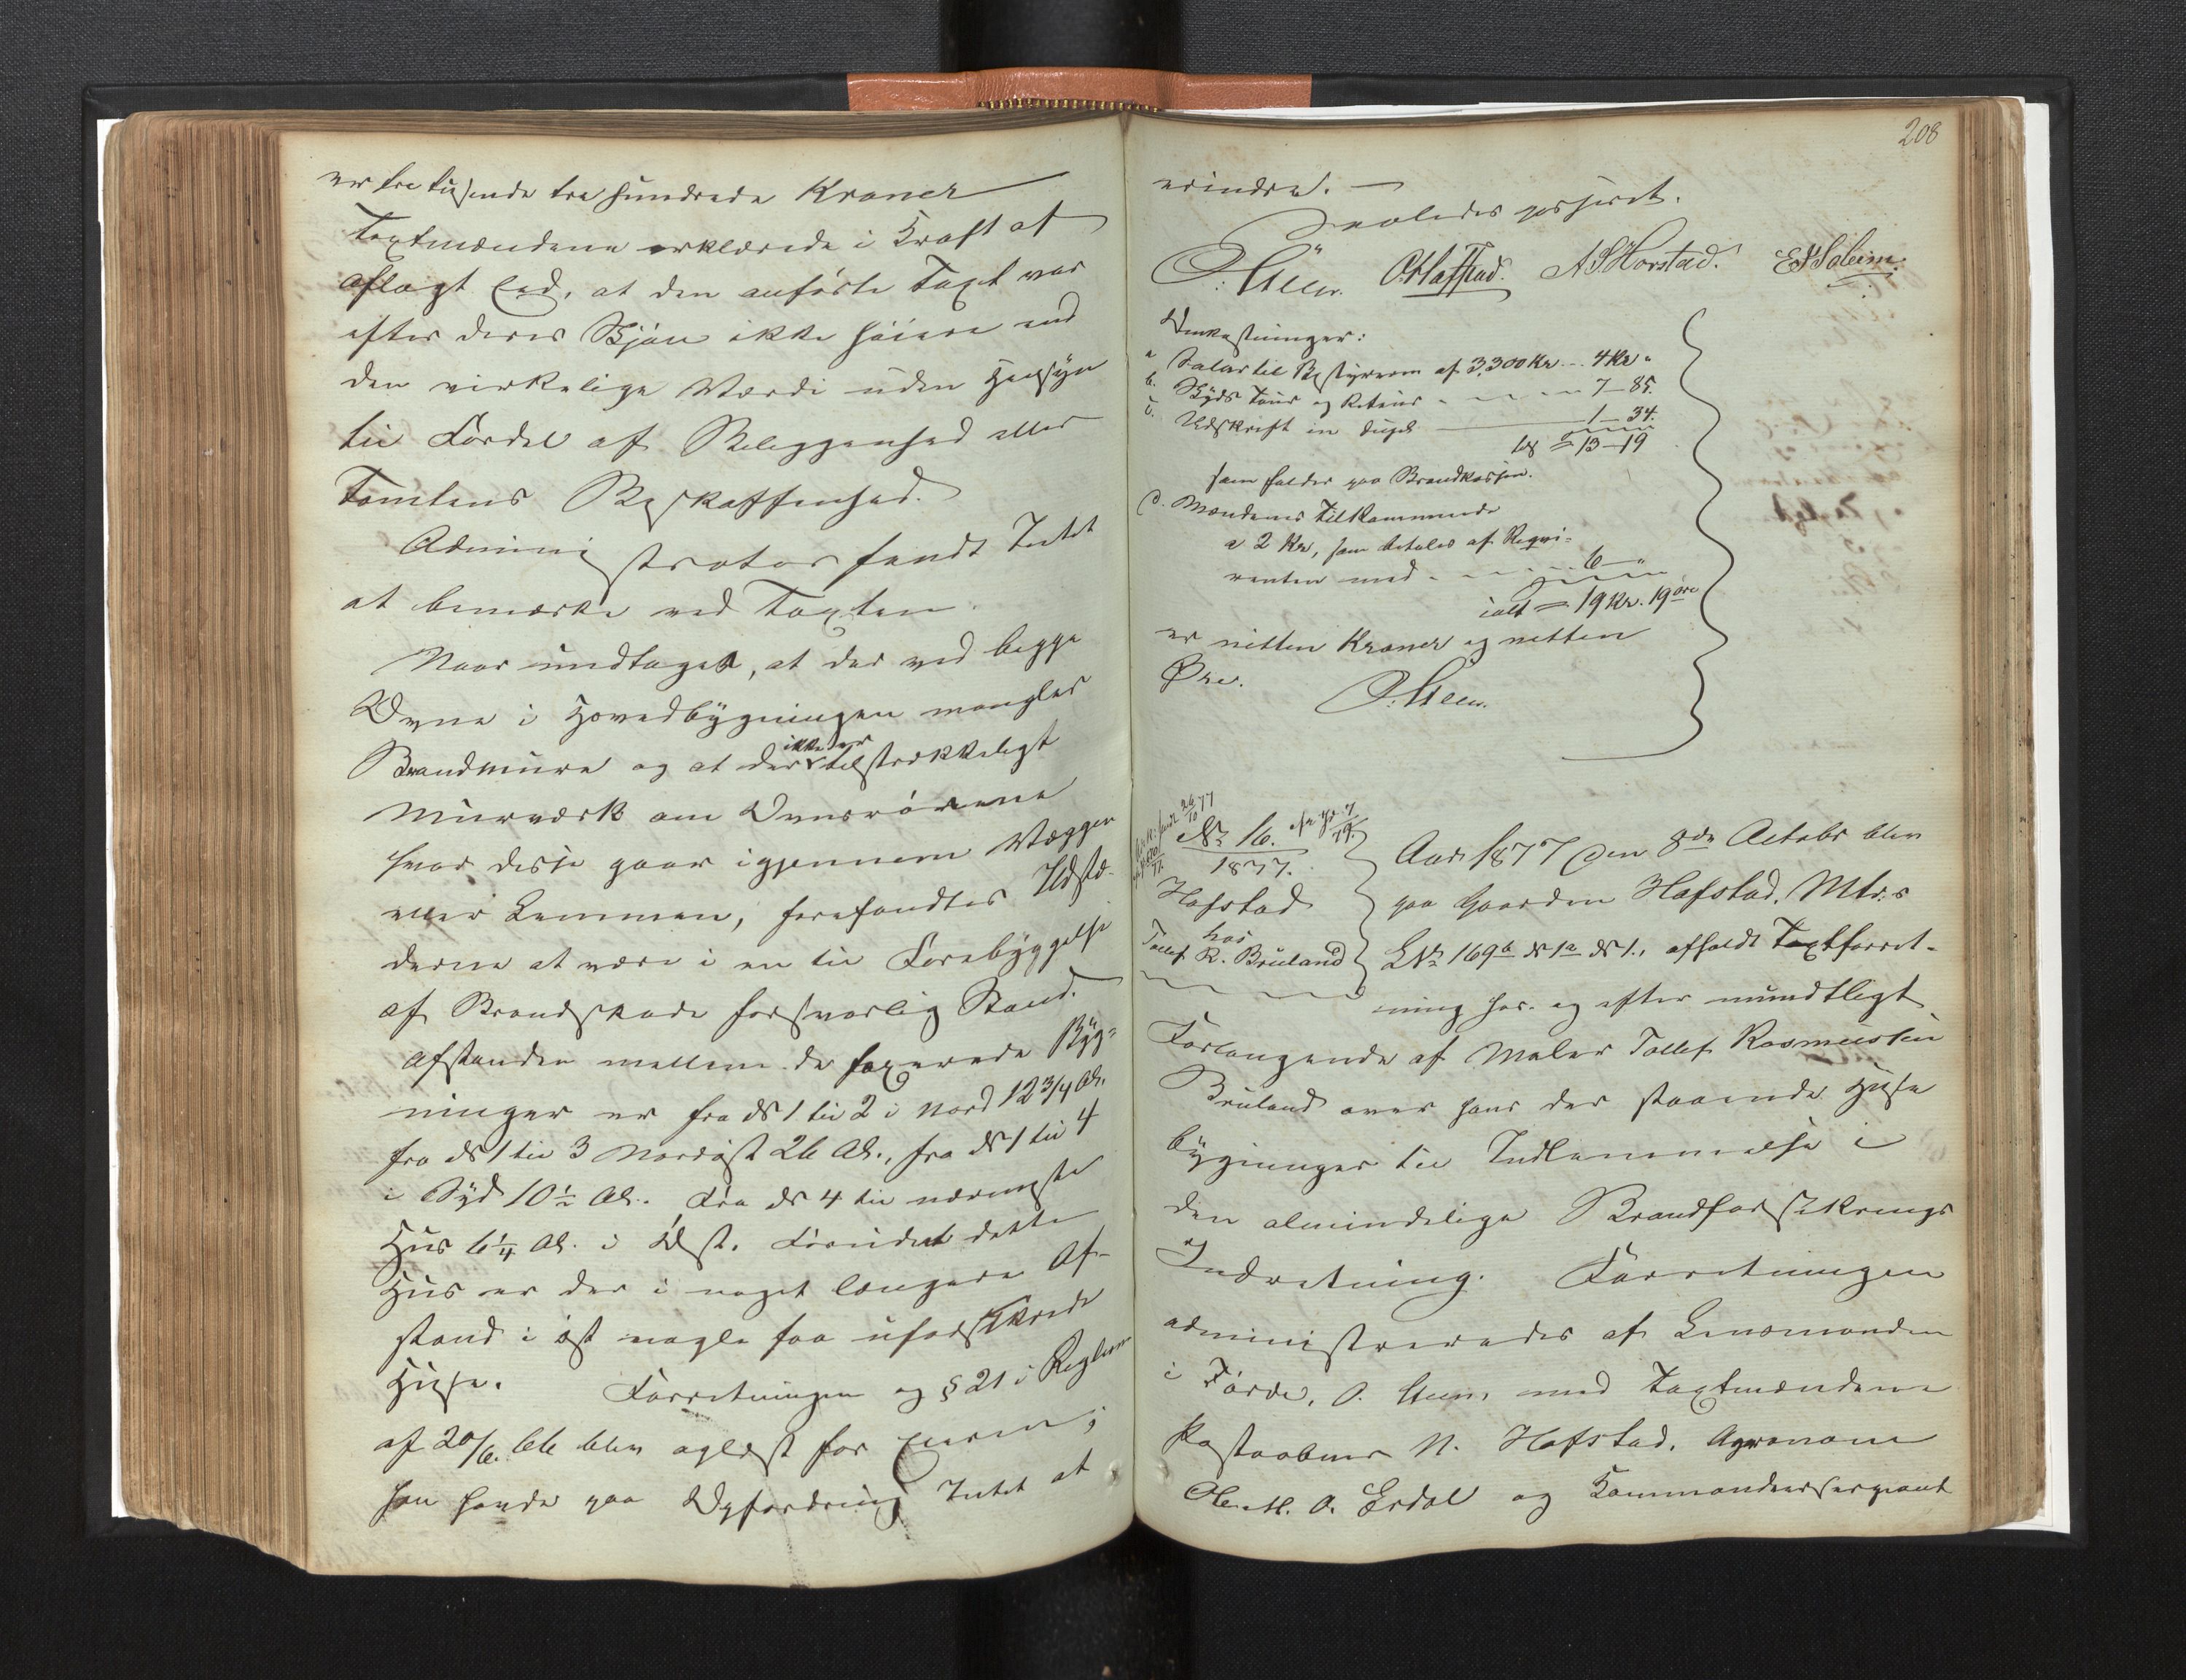 er tre tusende tre hundrede Kroner
Taxtmændene erklærede i Kraft af
aflagt Eed, at den anførte Taxt var
efter deres Skjøn ikke høiere end
den virkelige Værdi uden Hensyn
til Fordel af Beliggenhed eller
Tomtens Beskaffenhed.
Administrator fandt Intet
at bemærke ved Taxten.
Naar undtages, at der ved begge
Ovne i Hovedbygningen mangler
Brandmure og at der ikke er tilstrækkeligt
Murværk om Ovnsrørene
hvor disse gaar igjennem Vægger
eller Lemmen, forefandtes Ildste-
derne at være i en til Forebyggelse
af Brandskade forsvarlig Stand.
Afstanden mellem de taxerede Byg-
ninger er fra № 1 til 2 i Nord 12 3/4 Al.
fra № 1 til 3 Nordøst 26 Al., fra № 1 til 4
i Syd 10 1/2 Al. Fra № 4 til nærmeste
Hus 6 1/4 Al. i Øst. Foruden dette
Hus er der i noget længere Af-
stand i øst nogle faa uforsikrede
Huse. Forretningen og § 21 i Reglem
af 20/6. 66 blev oplæst for Eieren;
han havde paa Opfordring Intet at
208
erindre. —
Saaledes passeret.
O. Steen. O. Hafstad. A S Horstad. E S Soleim.
Omkostninger:
a Salær til Bestyreren af 3,300 Kr... 4 Kr "
b. Skyds Tour og Retour - - - - 7 - 85.
c. Udskrift in dupl. 1 - 34.
= 13 - 19
som falder paa Brandkassen.
d. Mændenes Tilkommende
a 2 Kr, som betales af Reqvi-
renten med - - - - 6 - "
ialt = 19 Kr. 19 øre
er nitten Kroner og nitten
Øre.
O. Steen.
sendt 26/10 77
№ 16.
1877.
Hafstad
hos
Tollef R. Bruland
Aar 1877 den 8de Octobr blev
paa Gaarden Hafstad, Mtr:s
L№ 169b № 1a № 1., afholdt Taxtforret-
ning hos og efter mundtligt
Forlangende af Maler Tollef Rasmussen
Bruland over hans der staaende Huse
bygninger til Indlemmelse i
den almindelige Brandforsikrings
Indretning. Forretningen
administreredes af Lensmanden
i Førde, O. Steen med Taxtmændene
Postaabner N. Hafstad, Agronom
O. Erdal og Kommandeersergeant